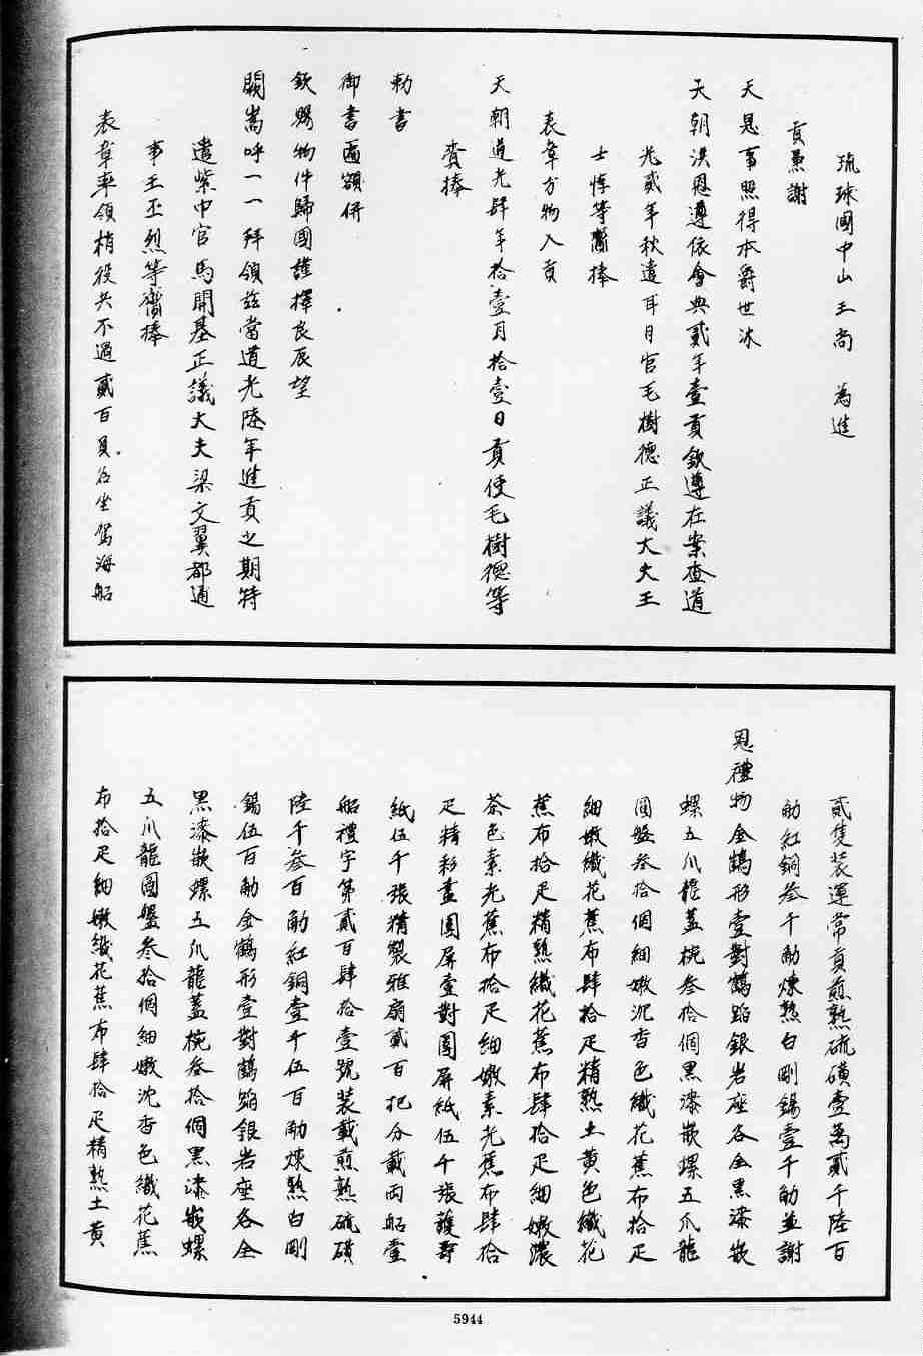 琉球國中山王尚　為進
貢兼謝
天恩事照得本爵世沐
天朝洪恩遵依會典貳年壹貢欽遵在案查道
光貳年秋遣耳目官毛樹德正議大夫王
士惇等齎捧
表章方物入貢
天朝道光肆年拾壹月拾壹日貢使毛樹德等
賫捧
勅書
御書匾額併
欽賜物件歸國謹擇良辰望
闕嵩呼一一拜領玆當道光陸年進貢之期特
遣紫巾官馬開基正議大夫梁文翼都通
事王丕烈等齎捧
表章率領梢役共不過貳百員名坐駕海船
貳隻裝運常貢煎熟硫磺壹萬貳千陸百
觔紅銅叁千觔煉熟白剛錫壹千觔並謝
恩禮物金鶴形壹對鶴踏銀岩座各全黑漆嵌
螺五爪龍蓋椀叁拾個黑漆嵌螺五爪龍
圓盤叁拾個細嫩沉香色織花蕉布拾疋
細嫩織花蕉布肆拾疋精熟土黃色織花
蕉布拾疋精熟織花蕉布肆拾疋細嫩濃
茶色素光蕉布拾疋細嫩素光蕉布肆拾
疋精彩畫圍屏壹對圍屏紙伍千張護壽
紙伍千張精製雅扇貳百把分載兩船壹
船禮字第貳百肆拾壹號裝載煎熟硫磺
陸千叁百觔紅銅壹千伍百觔煉熟白剛
錫伍百觔金鶴形壹對鶴踏銀岩座各全
黑漆嵌螺五爪龍蓋椀叁拾個黑漆嵌螺
五爪龍圓盤叁拾個細嫩沈香色織花蕉
布拾疋細嫩織花蕉布肆拾疋精熟土黃
5944